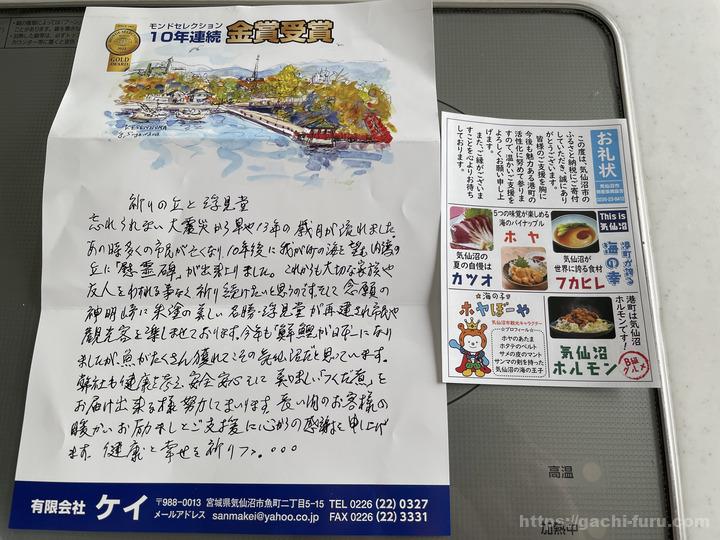 モンドセレクション
10年連続 金賞受賞
GOLD
AWARD
KESENNUMA
祈りの丘と浮見堂
忘れられない大震災から早や13年の歳月が流れました。
あの時多くの市民が亡くなり、10年後に我が街の海を望む
丘に「慰霊碑」が出来上りました。これからも大切な家族や
友人をわすれる事なく祈り続けたいと思うのです。そして念願の
神明崎に朱塗の美しい名勝・浮見堂が再建され市民や
観光客を楽しませております。今年も「鮮鰹が日本一」になり
ましたが、魚がたくさん獲れてこその気仙沼だと思っています。
弊社も健康を考え、安全安心そして美味しい「つくだ煮」を
お届け出来る様努力してまいります。長い間のお客様の
暖かいお励ましとご支援に心からの感謝を申し上げ
ます。健康と幸せを祈りつつ。。。
有限会社 ケイ 〒988-0013 宮城県気仙沼市魚町二丁目5-15 TEL 0226 (22) 0327
メールアドレス sanmakei@yahoo.co.jp FAX 0226 (22) 3331
お礼状
気仙沼市
この度は、気仙沼市の
ふるさと納税にご寄付
していただき、誠にあり
がとうございます。
皆様のご支援を胸に
今後も魅力ある港町の
活性化に努めて参りま
すので、温かいご支援を
よろしくお願い申し上
げます。
また、ご縁がございま
すことを心よりお待ち
しております。
This is
気仙沼
港町が誇る
海の幸
5つの味覚が楽しめる
海のパイナップル
ホヤ
気仙沼の
夏の自慢は
カツオ
気仙沼が
世界に誇る食材
フカヒレ
☆海の子☆
ホヤぼーや
気仙沼市観光キャラクター
☆プロフィール☆
ホヤのあたま
ホタテのベルト
サメの皮のマント
サンマの剣を持った
気仙沼の海の王子
港町は気仙沼
ホルモンです!
気仙沼
ホルモン
B級
グルメ
高温
加熱中
https://gachi-furu.com